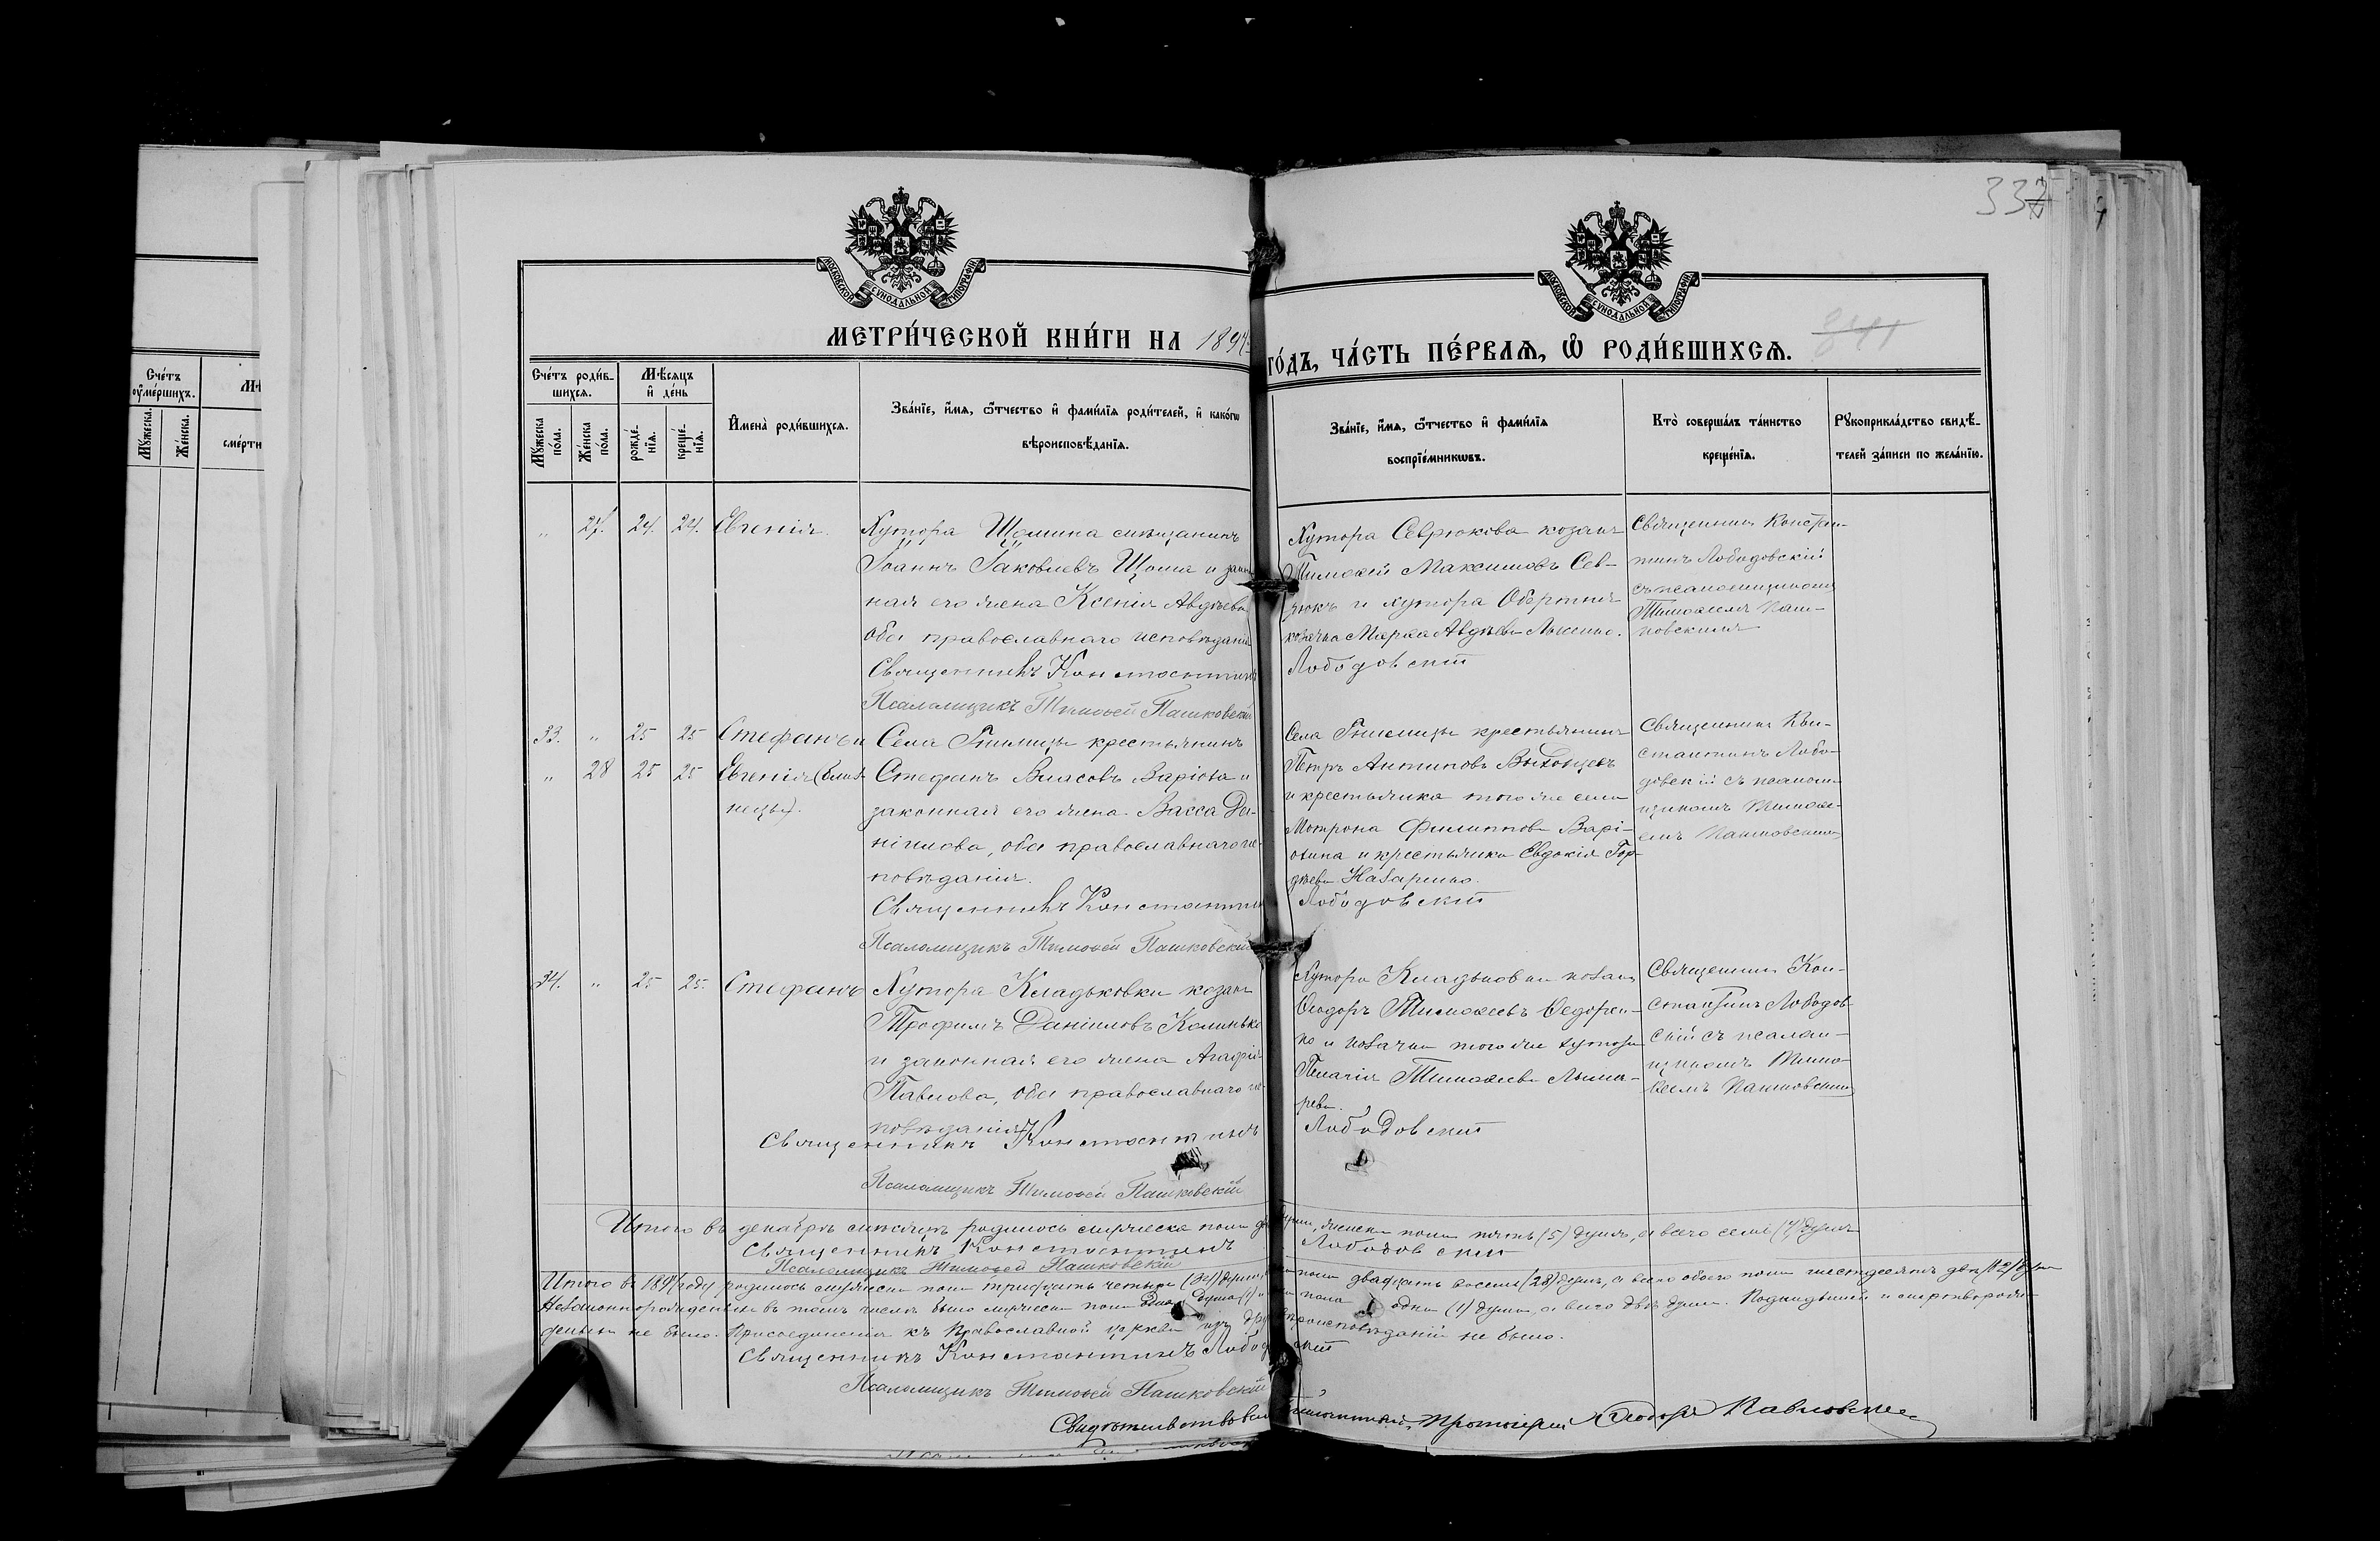 332
МОСКОВСКОЙ СѴНОДАЛЬНОЙ ТИПОГРАФІИ
МОСКОВСКОЙ СѴНОДАЛЬНОЙ ТИПОГРАФІИ
МЕТРИ́ЧЕСКОЙ КНИ́ГИ НА 1894
ГО́ДЪ, ЧА́СТЬ ПЕ́РВАѦ, Ѽ РОДИ́ВШИХСѦ.
Сче́тъ оумершихъ.
Мꙋжеска.
Же́нска.
Сче́тъ роди́вшихсѧ.
Мꙋжеска по́ла.
Же́нска по́ла.
Мѣсѧцъ и де́нь
рожде́нїѧ.
креще́нїѧ.
Имена̀ роди́вшихсѧ.
Зва́нїе, и́мѧ, ѻ́тчество и фами́лїѧ роди́телей, и како́гѡ
вѣроисповѣ́данїѧ.
Зва́нїе, и́мѧ, ѻ́тчество и фами́лїѧ
воспрїе́мникѡвъ.
Кто̀ соверша́лъ та́инство
креще́нїѧ.
Рꙋкоприкла́дство свидѣ́-
телей за́писи по жела́нїю.
" 27. 24. 24. Евгенія.
Хутора Щомина мѣщанинъ
Іоаннъ Іаковлевъ Щома и закон
ная его жена Ксенія Авдѣева
оба православнаго исповѣданія
Священникъ Константинъ
Псаломщикъ Тимоѳей Пашковскій
Хутора Севрюкова козакъ
Тимоѳей Максимовъ Сев-
рюкъ и хутора
козачка Марѳа Авдѣева
Лободовскій
Священникъ Констан-
тинъ Лободовскій
съ псаломщикомъ
Тимоѳеемъ Паш-
ковскимъ
33. " 25 25 Стефанъ и
" 28 25 25 Евгенія (близ
нецы).
Села Гнилицы крестьянинъ
Стефанъ Власовъ Варіоха и
законная его жена Васса Да-
ніилова, оба православнаго ис-
повѣданія.
Священникъ Константинъ
Псаломщикъ Тимоѳей Пашковскій
Села Гнилицы крестьянинъ
Петръ Антиповъ
и крестьянка того же села
Мотрона Филиппова Варі-
охина и крестьянка Евдокія Гор-
дѣева Назаренко.
Лободовскій
Священникъ Кон-
стантинъ Лобо-
довскій съ псалом-
щикомъ Тимоѳе-
емъ Пашковскимъ
34. " 25 25. Стефанъ
Хутора Кладьковки козакъ
Трофимъ Даніиловъ Калинько
и законная его жена Агафія
Павлова, оба православнаго ис-
повѣданія
Священникъ Константинъ
Псаломщикъ Тимоѳей Пашковскій
Хутора Кладьковки козакъ
Ѳеодоръ Тимоѳеевъ Ѳедорен-
ко и козачка того же хутора
Пелагія Тимоѳеева Лыма-
рева.
Лободовскій
Священникъ Кон-
стантинъ Лободов-
скій съ псалом-
щикомъ Тимо-
ѳеемъ Пашковскимъ
Итого въ декабрѣ мѣсяцѣ родилось мужеска пола души, женска пола пять (5) душъ, а всего семь (7) душъ
Священникъ Константинъ Лободовскій
Псаломщикъ Тимоѳей Пашковскій
Итого въ 1894 году родилось мужеска пола тридцать четыре (34) души, пола двадцать восемь (28) душъ, а всего обоего пола шестьдесятъ двѣ (62) души
Незаконнорожденныхъ въ томъ числѣ было мужеска пола одна душа (1) и пола одна (1) душа, а всего двѣ души. Подкидышей и мертворож-
денныхъ не было. Присоединенія къ Православной церкви изъ вѣроисповѣданій не было.
Священникъ Константинъ Лободовскій
Псаломщикъ Тимоѳей Пашковскій
Свидѣтельствовалъ Протоіерей Ѳеодоръ